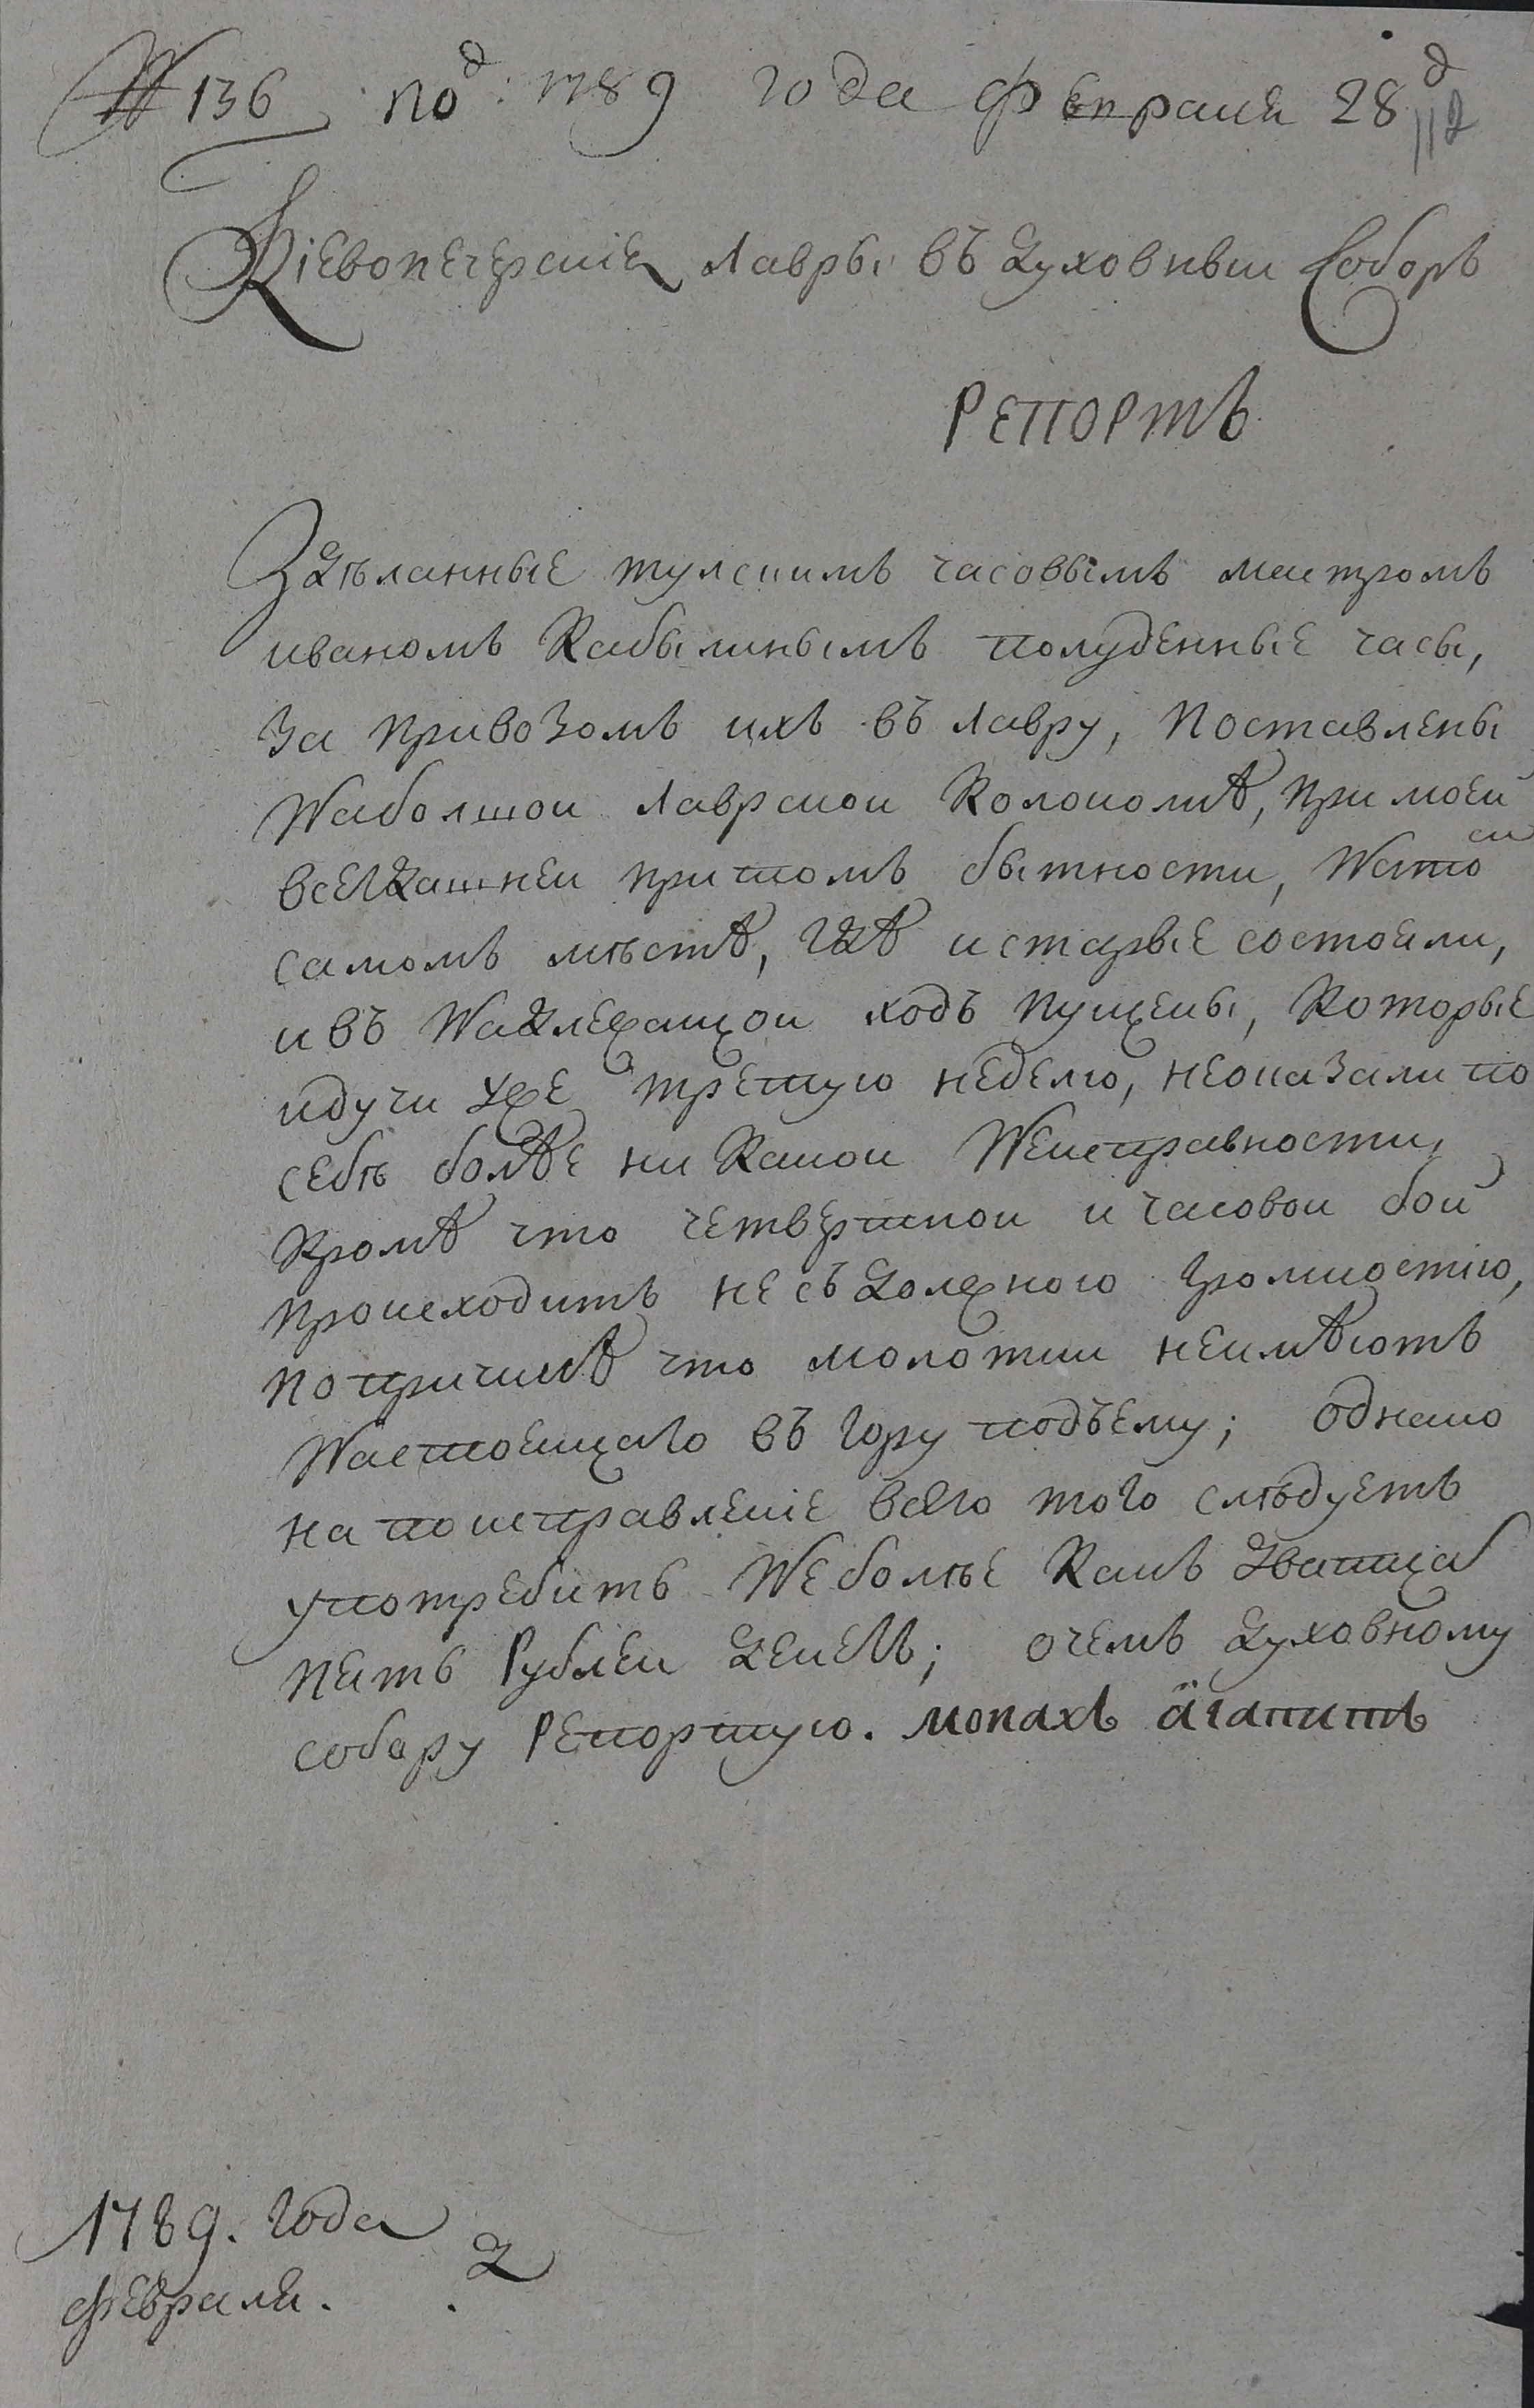 № 136 под. 1789 года февраля 28 д
112
Киевопечерския лавры въ духовный Соборъ
Репортъ
Зделанные тулскимъ часовымъ мастромъ
иваномъ Кабылинымъ полуденные часы,
за привозомъ ихъ въ лавру, поставлены
на болшой лаврской колоколнѣ, при моей
всегдашней притомъ бытности, на том
самомъ мѣстѣ, гдѣ и старые состояли,
и въ надлежащой ходъ пущены, которые
идучи уже третую неделю, неоказали по
себѣ болѣе ни какой неисправности,
кромѣ что четвертной и часовой бой
происходитъ не съ должного громкостію,
по причинѣ что молотки неимѣютъ
настоящаго въ гору подъему; однако
на поисправленіе всего того слѣдуетъ
употребить неболѣе какъ дватцать
пять рублей денегъ; очемъ духовному
собору репортую. монахъ агапитъ
1789. года
февраля. . д